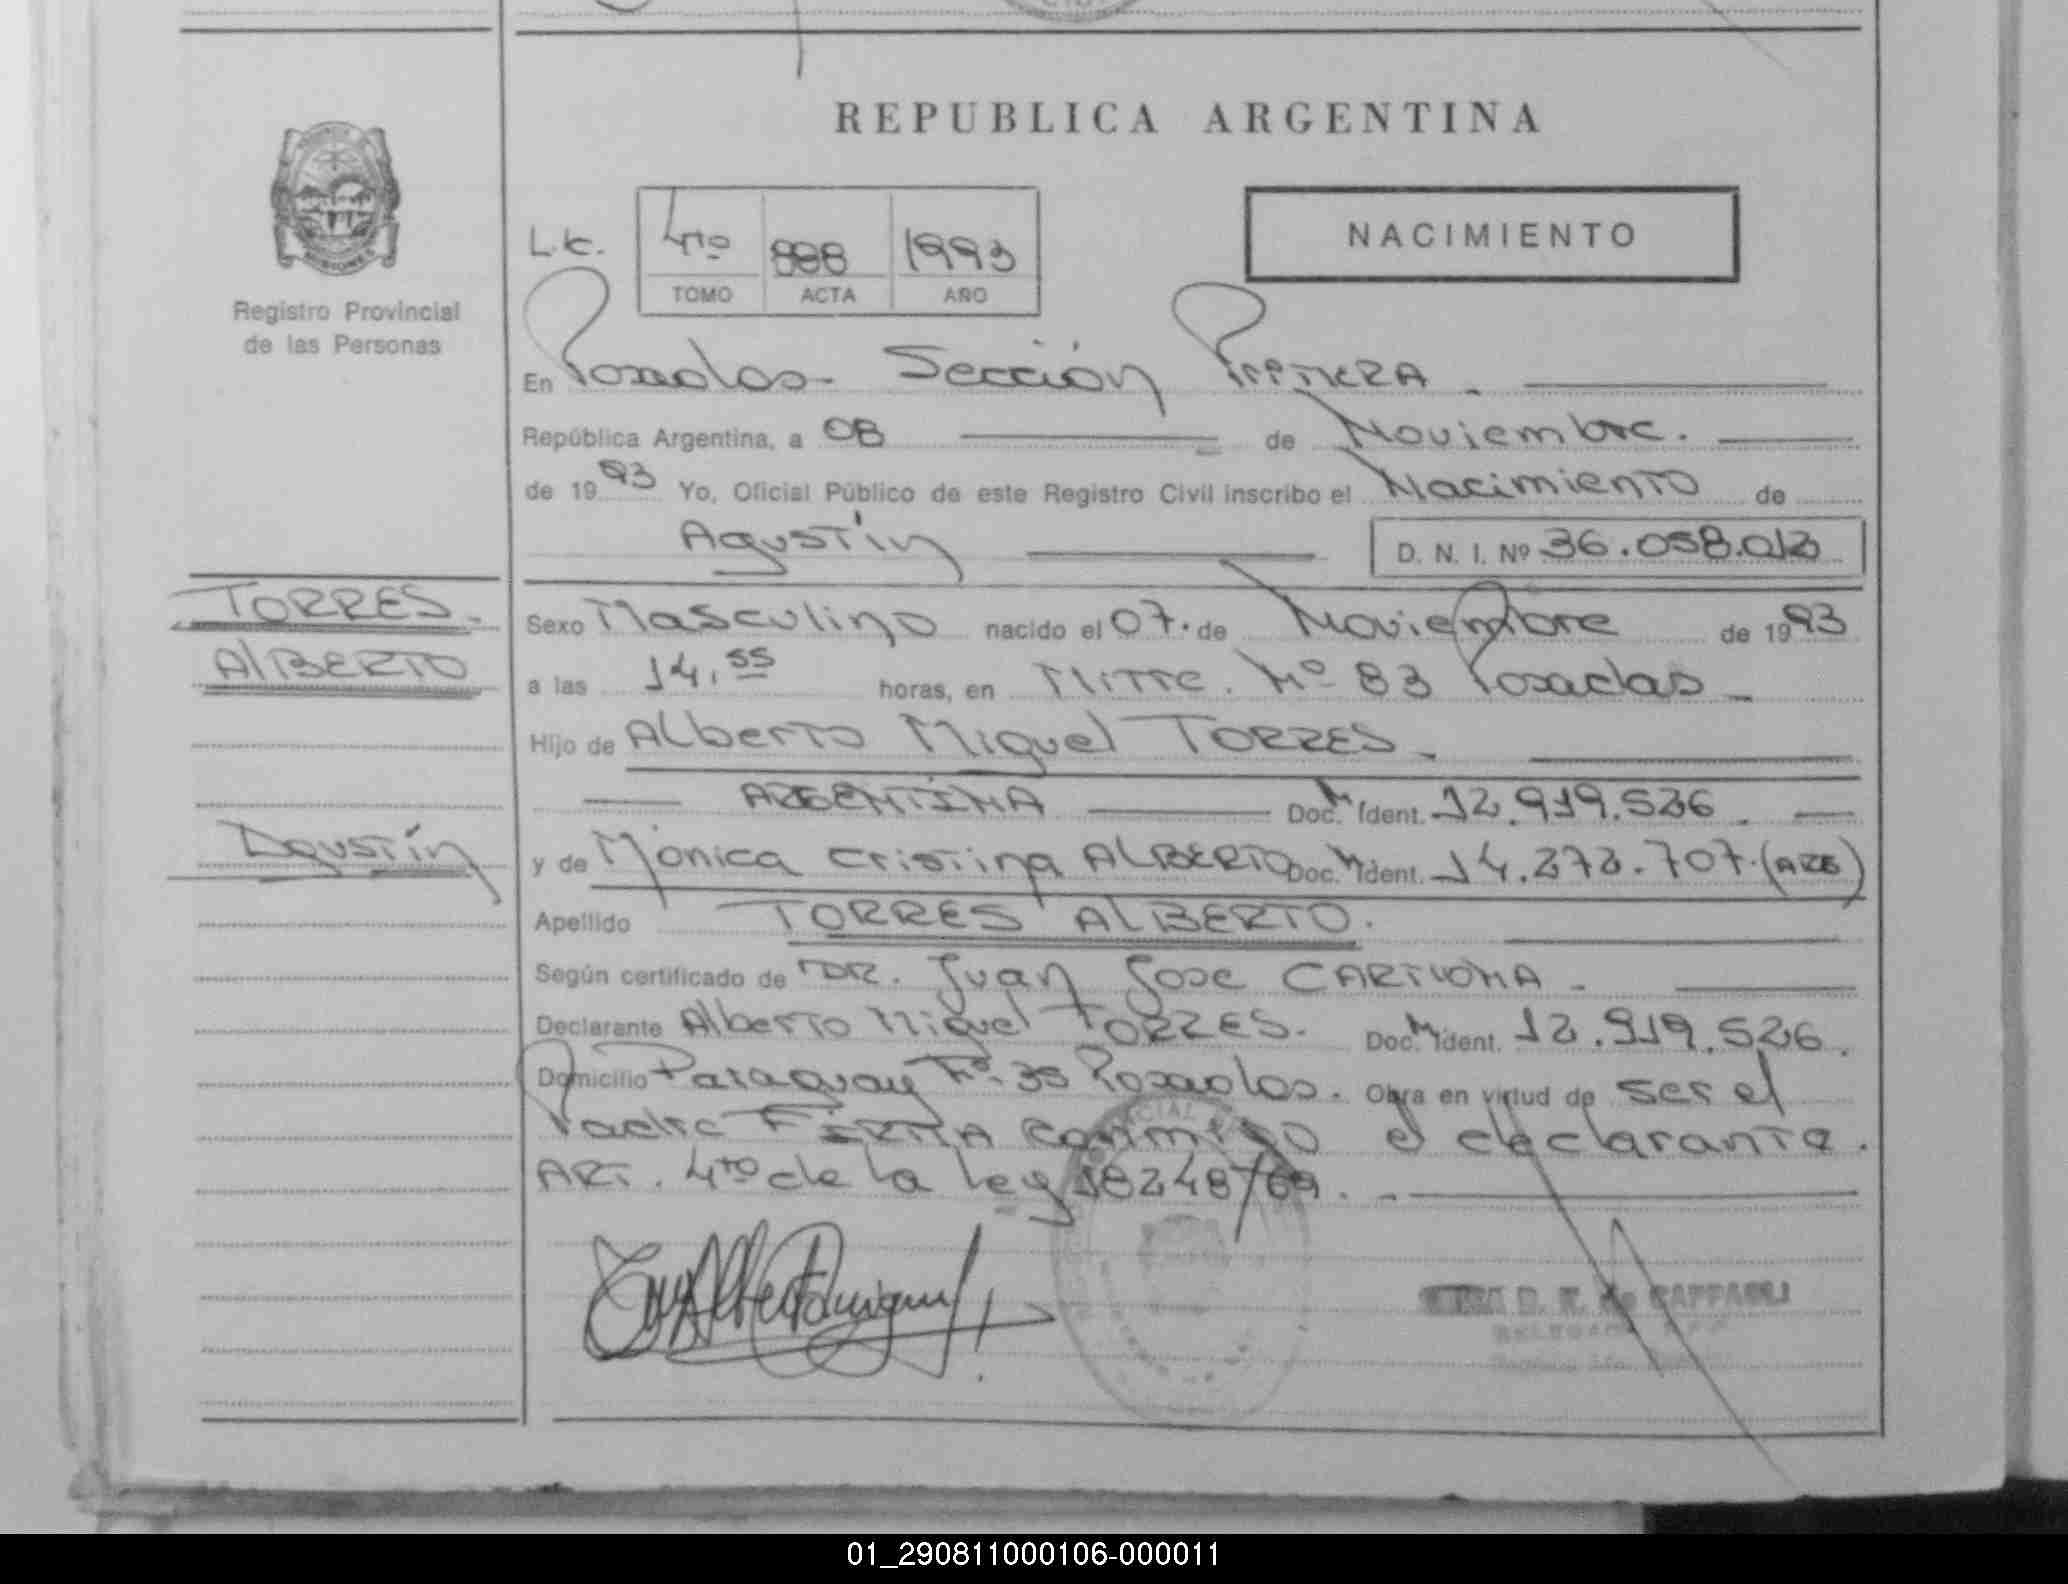 REPUBLICA ARGENTINA
MISIONES
Registro Provincial
de las Personas
L.c.
4to 888 1993
TOMO ACTA AÑO
NACIMIENTO
En Posadas - Sección Primera.
República Argentina, a 08 de Noviembre.
de 1993 Yo, Oficial Público de este Registro Civil inscribo el Nacimiento de
Agustín D. N. I. Nº 36.058.013
TORRES.
ALBERTO
Agustín
Sexo Masculino nacido el 07. de Noviembre de 1993
a las 14,55 horas, en Mitre. Nº 83 Posadas -
Hijo de Alberto Miguel TORRES -
ARGENTINA Doc. M Ident. 12.919.526.
y de Mónica Cristina ALBERTO Doc. M Ident. 14.272.707. (ARG)
Apellido TORRES ALBERTO.
Según certificado de DR. Juan Jose -
Declarante Alberto Miguel TORRES. Doc. M Ident. 12.919.526.
Domicilio Paraguay Nº 35 Posadas. Obra en virtud de ser el
Padre FIRMA conmigo el declarante.
ART. 4to de la Ley 18248/69. -
D. de CAPPAGLI
01_290811000106-000011